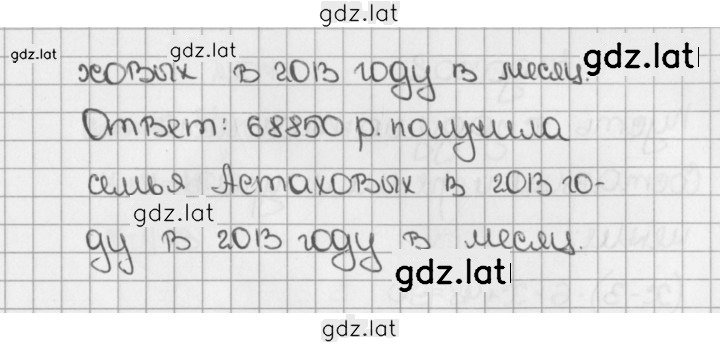 gdz.lat
gdz.lat gdz.lat
ховых в 2013 году в месяц. gdz.lat
Ответ: 68850 р. получила
семья Астаховых в 2013 го-
gdz.lat
ду в 2013 году в месяц.
gdz.lat
gdz.lat